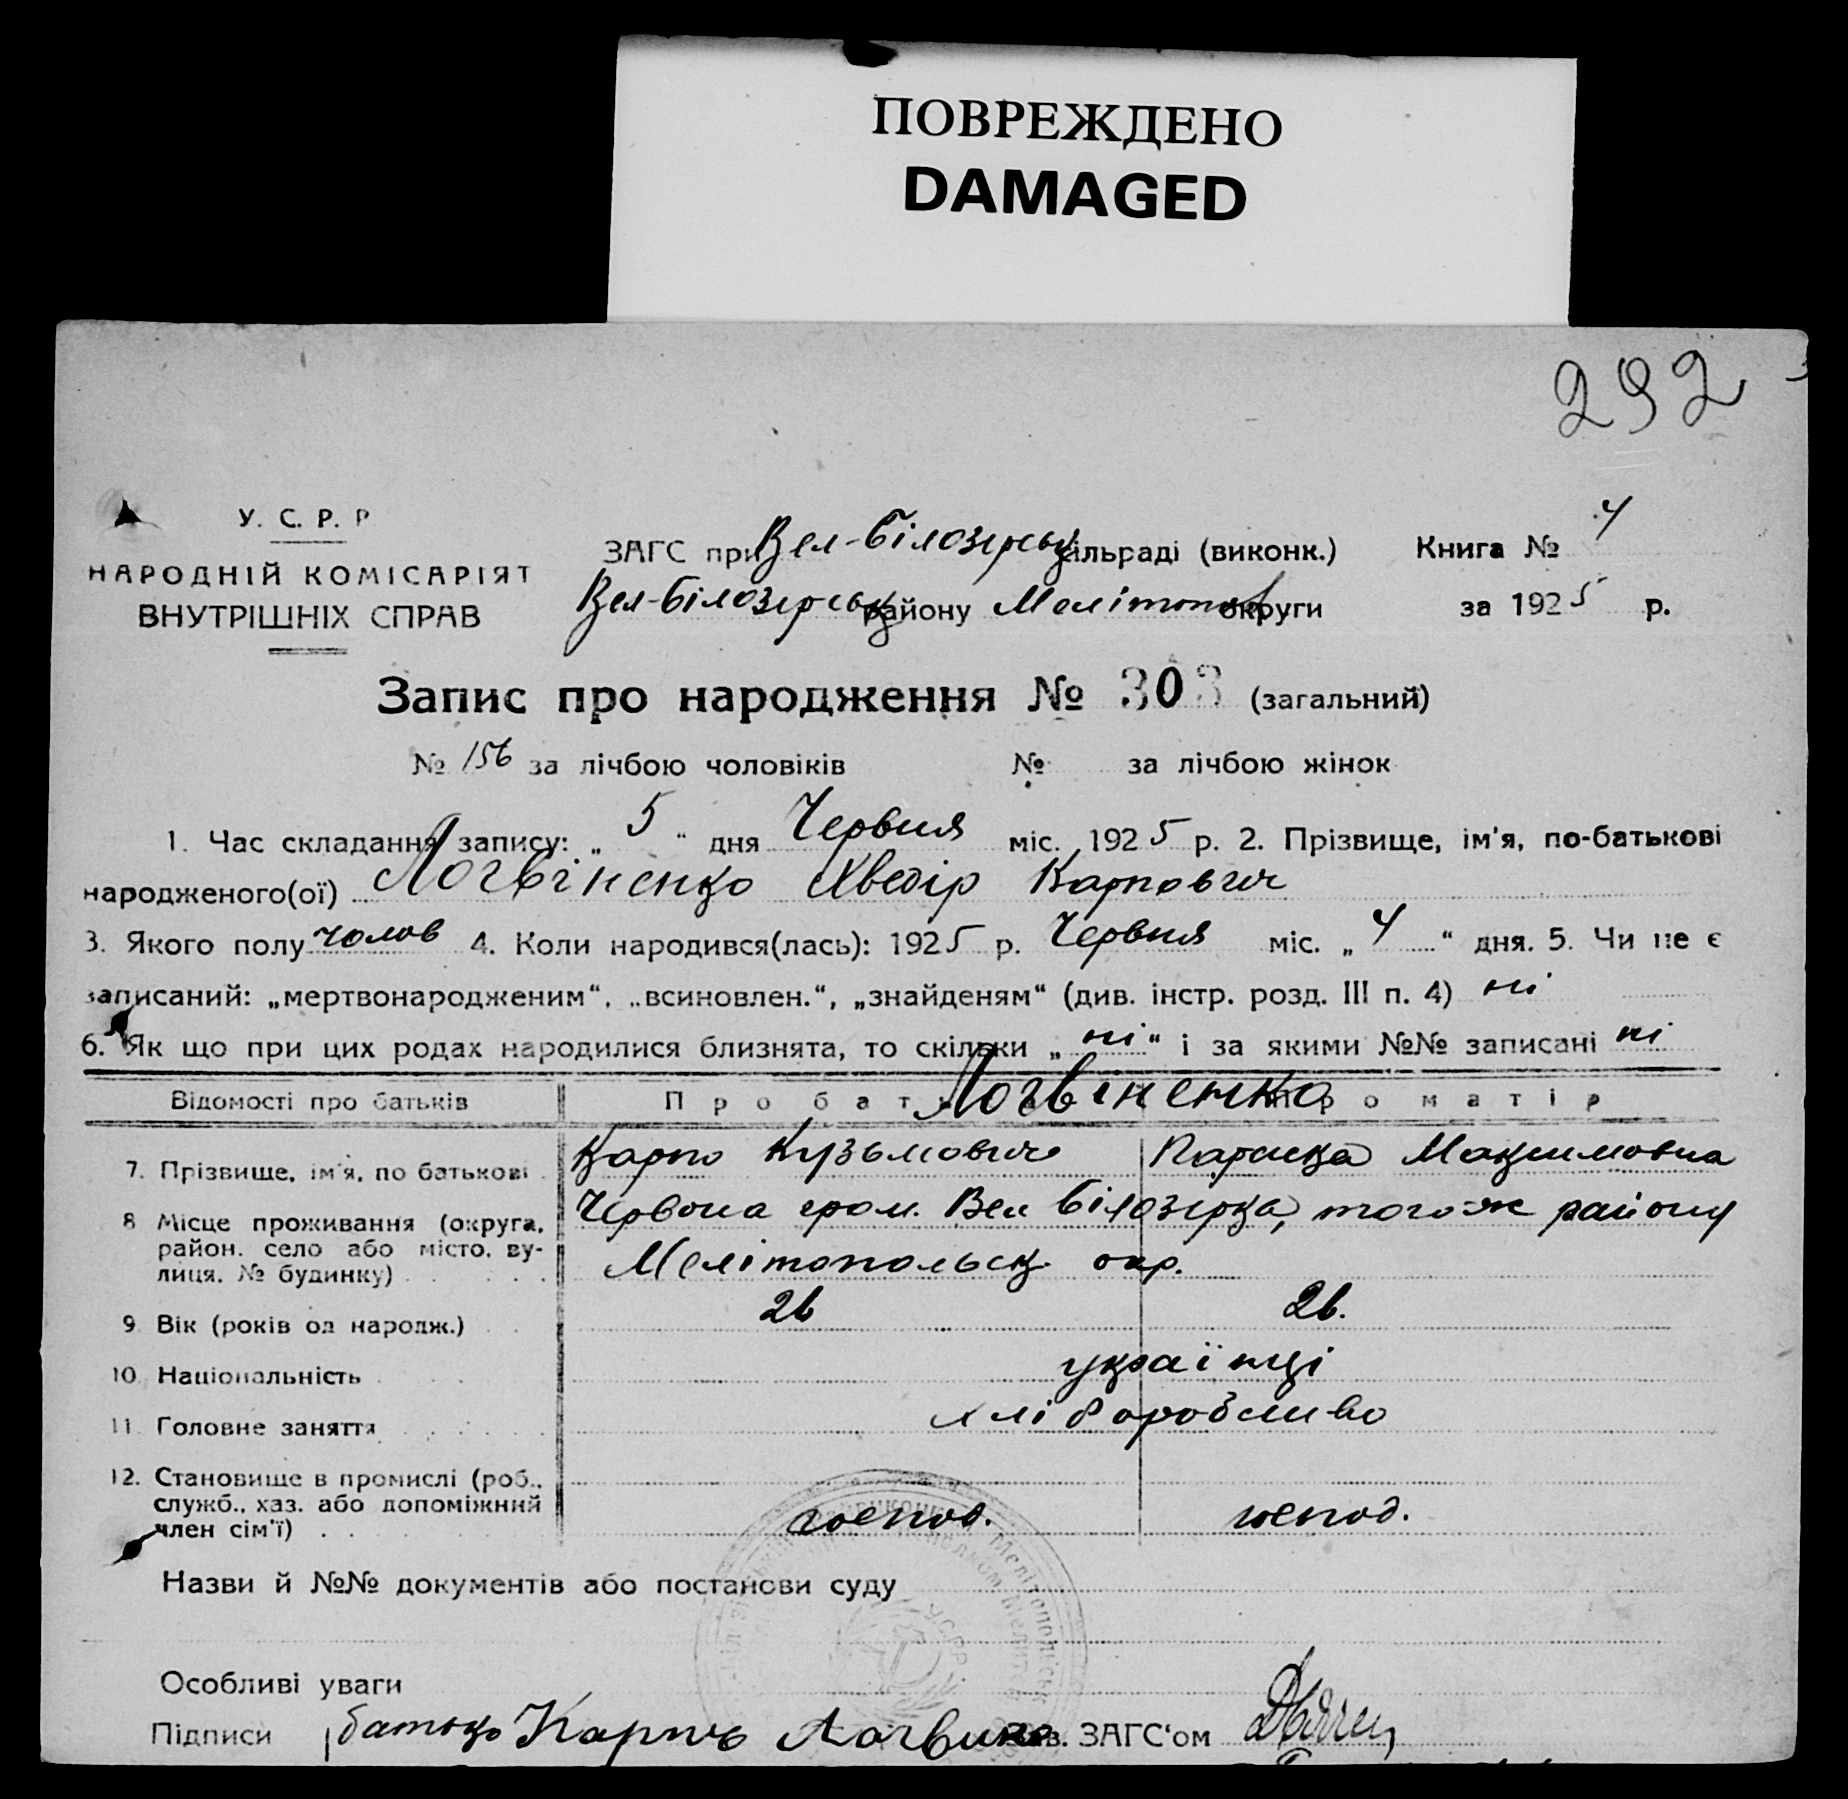 ПОВРЕЖДЕНО
DAMAGED
292
У. С. Р. Р
НАРОДНІЙ КОМІСАРІЯТ
ВНУТРІШНІХ СПРАВ
ЗАГС при Вел-Білозерськ сільраді (виконк.) Книга № 4
Вел-Білозерськ району Мелітопол округи за 1925 р.
Запис про народження № 303 (загальний)
№ 156 за лічбою чоловіків № за лічбою жінок
1. Час складання запису: „ 5 “ дня Червня міс. 1925 р. 2. Прізвище, ім'я, по-батькові
народженого(ої) Логвіненко Хведір Карпович
3. Якого полу чолов 4. Коли народився(лась): 1925 р. Червня міс. „ 4 “ дня. 5. Чи не є
записаний: „мертвонародженим“, „всиновлен.“, „знайденям“ (див. інстр. розд. III п. 4) ні
6. Як що при цих родах народилися близнята, то скільки „ ні “ і за якими №№ записані ні
Відомості про батьків Про батька Логвіненко Про матір
7. Прізвище, ім'я, по батькові Карпо Кузьмович Параска Максимовна
8 Місце проживання (округа, район, село або місто, вулиця, № будинку) Червона гром. Вел Білозерка, тогож району
Мелітопольськ окр.
9 Вік (років од народж.) 26 26.
10 Національність українці
11 Головне заняття хліборобство
12. Становище в промислі (роб., служб., хаз. або допоміжний член сім'ї) господ. господ.
Назви й №№ документів або постанови суду
Особливі уваги
Підписи батько Карпо Логвин Зав. ЗАГС'ом
УСРР